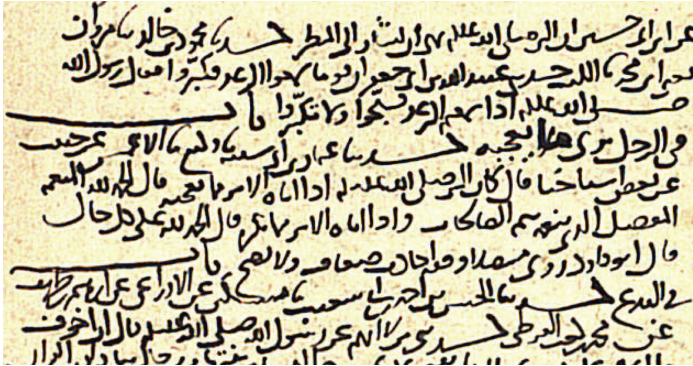 عن ابن ابي حسين ان النبي صلى الله عليه نهى ان يشار الى المطر حدثنا محمود بن خالد نا مروان
ابن محمد نا الليث حدثني عبيد الله بن ابي جعفر ان قوما سمعوا الرعد فكبروا فقال رسول الله
صلى الله عليه اذا سمعتم الرعد فسبحوا ولا تكبروا باب
في الرجل يرى ما يعجبه حدثنا نا وكيع نا الاعمش عن حبيب
عن بعض اشياخنا قال كان النبي صلى الله عليه اذا اتاه الامر مما يعجبه قال الحمد لله المنعم
المفضل الذي بنعمته تتم الصالحات واذا اتاه الامر مما يكره قال الحمد لله على كل حال
قال ابو داود روي مسندا وفيه احاديث ضعاف ولا يصح باب
في البدع حدثنا الحسن بن احمد بن ابي شعيب نا مسكين عن الاوزاعي عن ابراهيم بن طريف
عن محمد بن كعب القرظي حدثني من لا اتهم عن رسول الله صلى الله عليه وسلم قال ان اخوف